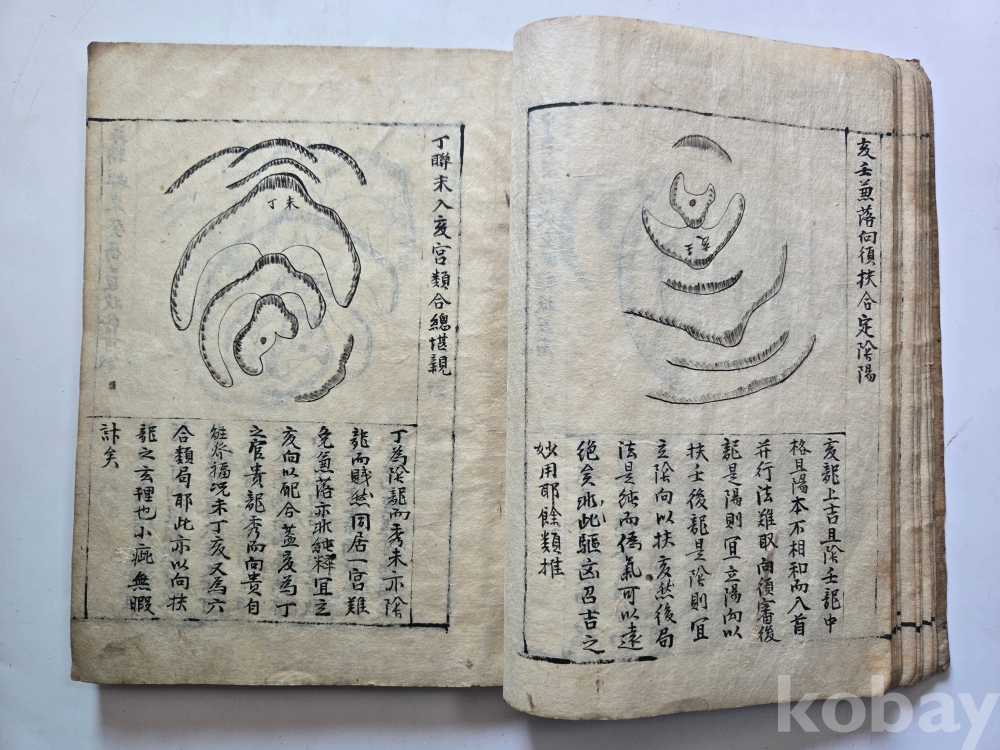 亥壬兼落向須扶合定陰陽
亥壬
亥龍上吉且陰壬龍中
格且陽本不相和而入首
并行法難取向須審後
龍是陽則宜立陽向以
扶壬後龍是陰則宜
立陰向以扶亥然後局
法是純而偽氣可以遠
絶矣非此驅凶召吉之
妙用耶餘類推
丁聯未入亥宮類合總堪親
丁未
丁為陰龍而秀未亦陰
龍而賤然同居一宮難
免兼落亦非純粹宜立
亥向以配合蓋亥為丁
之官貴龍秀而向貴自
能發福况未丁亥又為六
合類局耶此亦以向扶
龍之玄理也小疵無暇
計矣
kobay